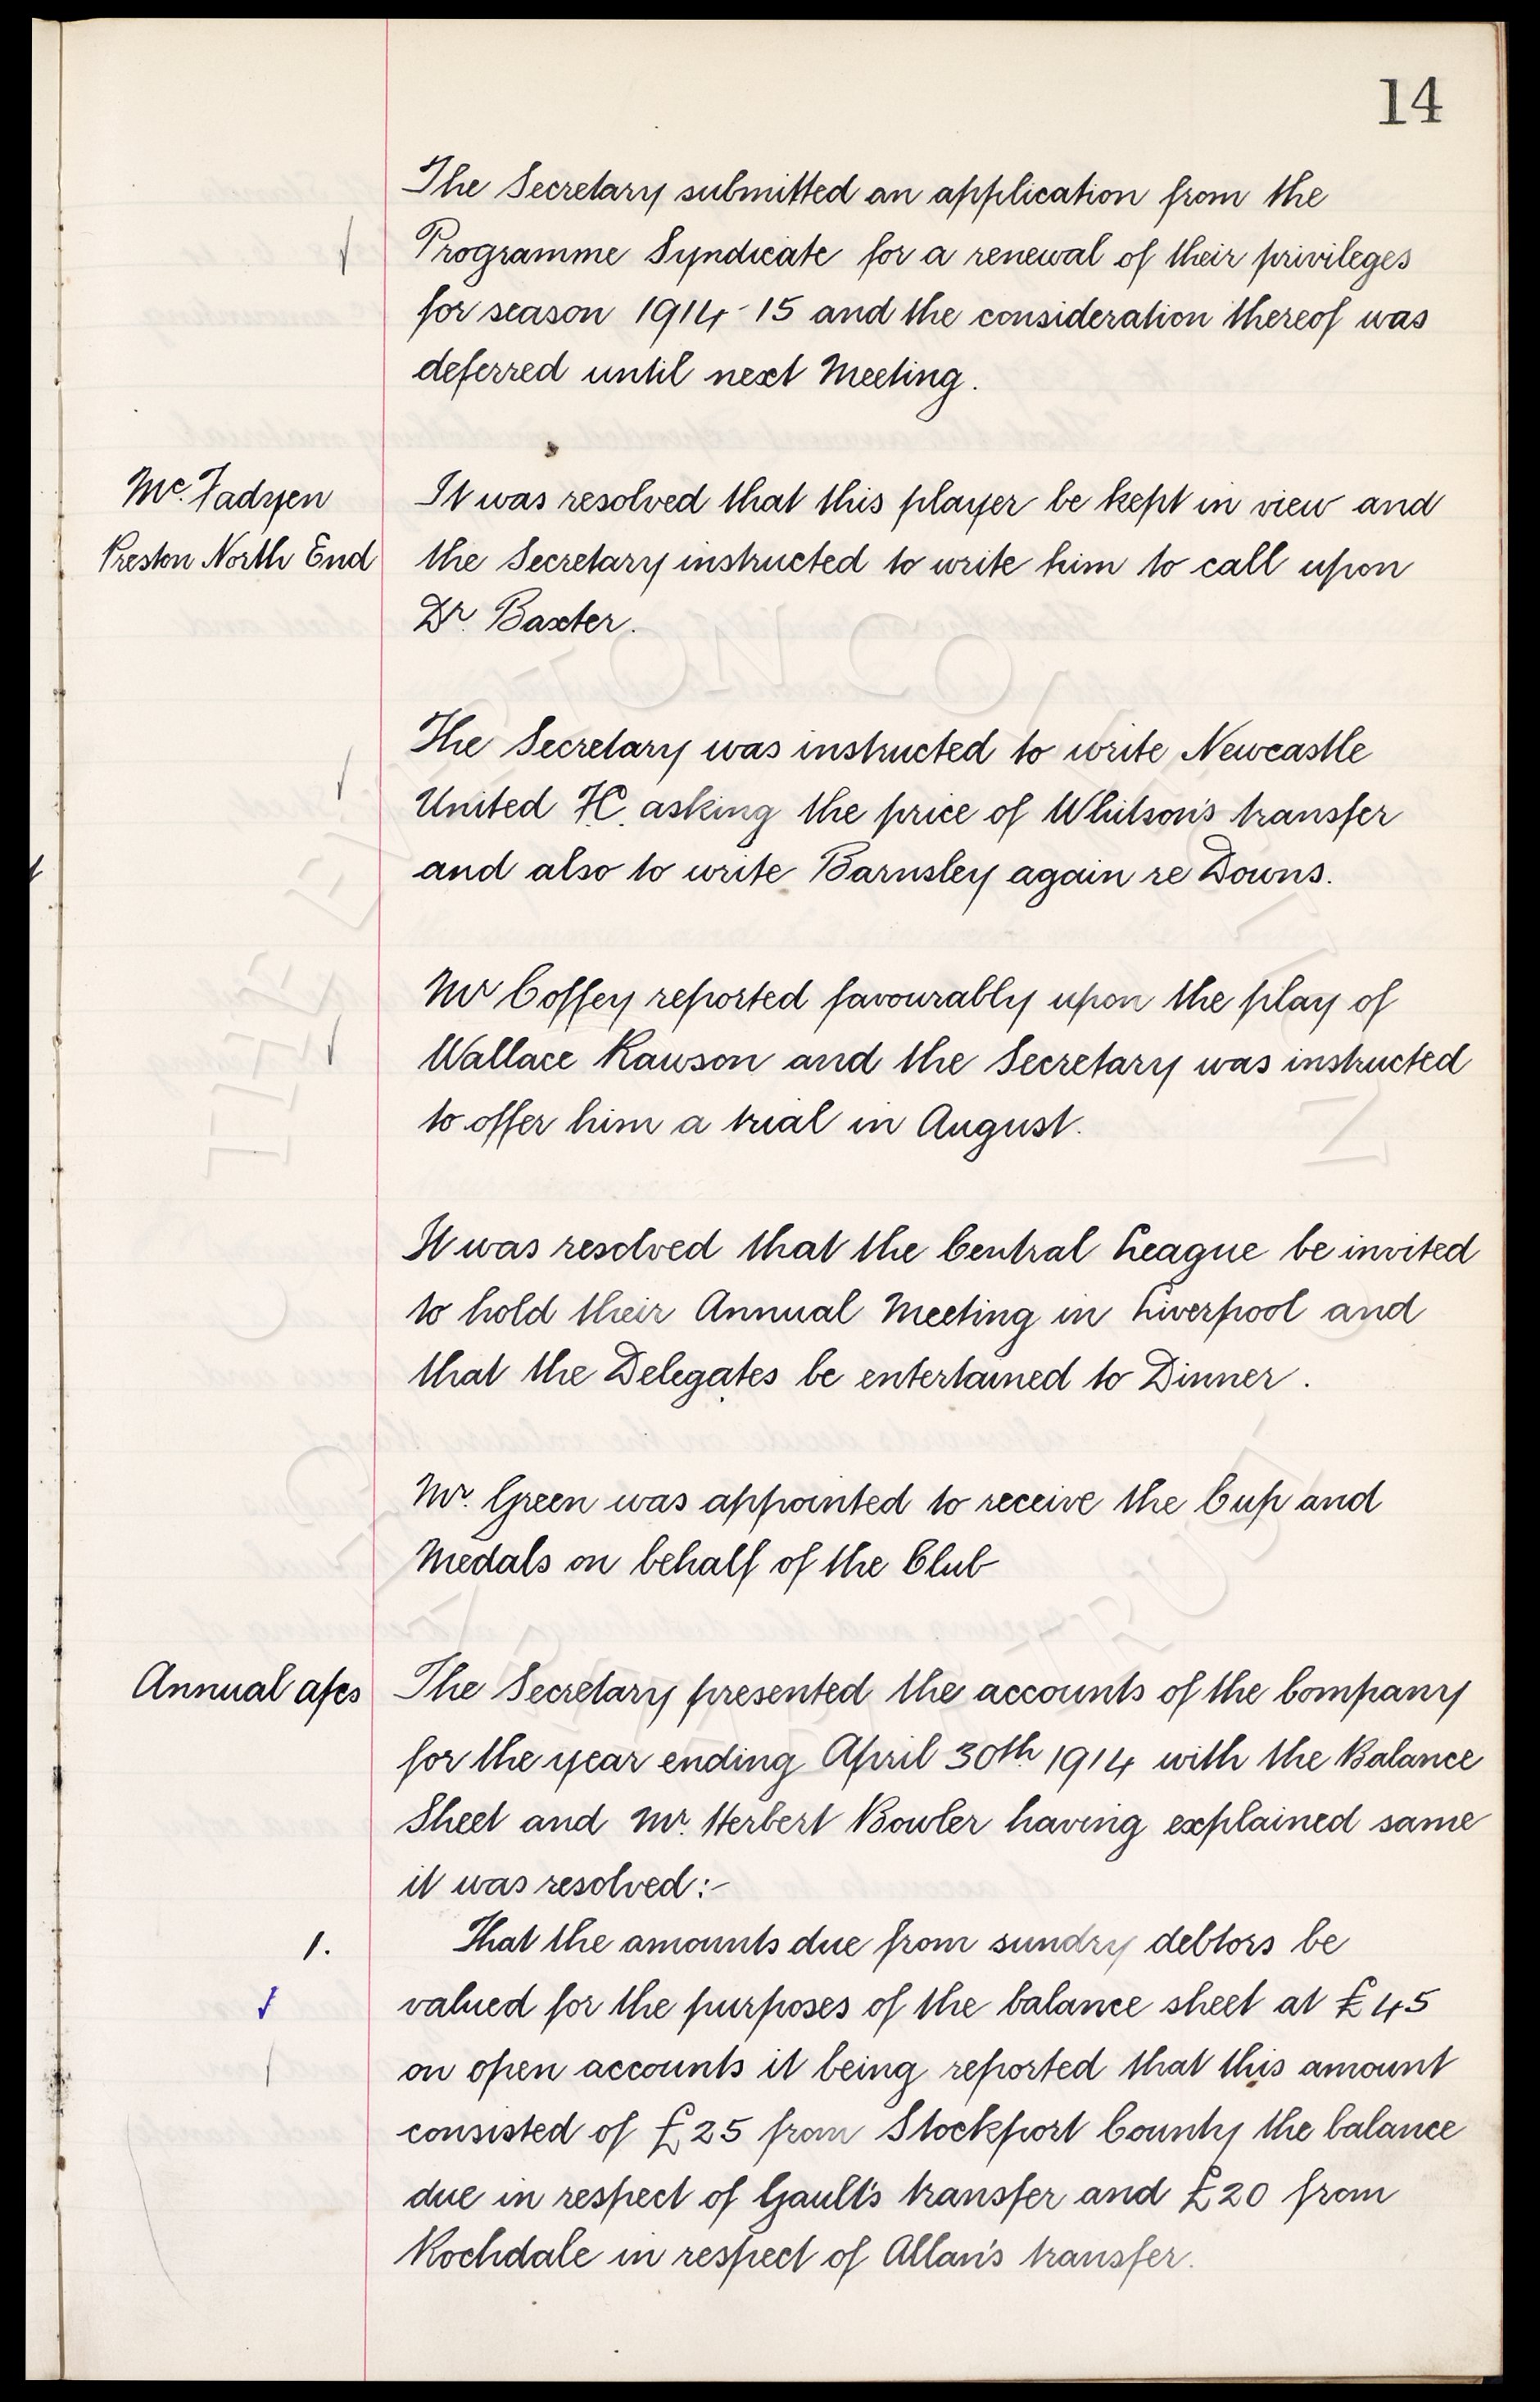 14
The Secretary submitted an application from the
Programme Syndicate for a renewal of their privileges
for season 1914-15 and the consideration thereof was
deferred until next Meeting.
Mc. Fadyen
Preston North End
It was resolved that this player be kept in view and
the Secretary instructed to write him to call upon
Dr. Baxter.
The Secretary was instructed to write Newcastle
United F.C. asking the price of Whitson's transfer
and also to write Barnsley again re Downs.
Mr Coffey reported favourably upon the play of
Wallace Rawson and the Secretary was instructed
to offer him a trial in August.
It was resolved that the Central League be invited
to hold their Annual Meeting in Liverpool and
that the Delegates be entertained to Dinner.
Mr. Green was appointed to receive the Cup and
Medals on behalf of the Club
Annual a/cs
The Secretary presented the accounts of the Company
for the year ending April 30th 1914 with the Balance
Sheet and Mr. Herbert Bowler having explained same
it was resolved:-
1.
That the amounts due from sundry debtors be
valued for the purposes of the balance sheet at £45
on open accounts it being reported that this amount
consisted of £25 from Stockport County the balance
due in respect of Gault's transfer and £20 from
Rochdale in respect of Allan's transfer.